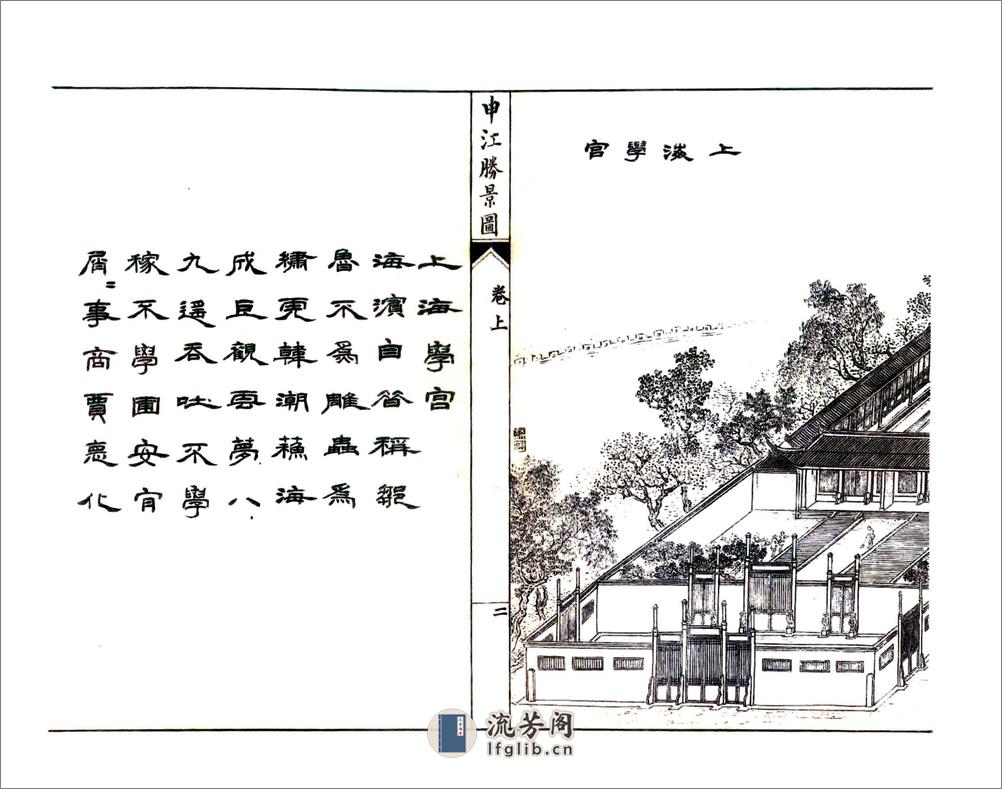 上海學宮
申江勝景圖
卷上
二
上海學宮
海濱自昔稱鄒
魯不爲雕蟲爲
繡虎韓潮蘇海
成巨觀雲夢八
九遥吞吐不學
稼不學圃安肎
屑〻事商賈悳化
流芳阁
lfglib.cn